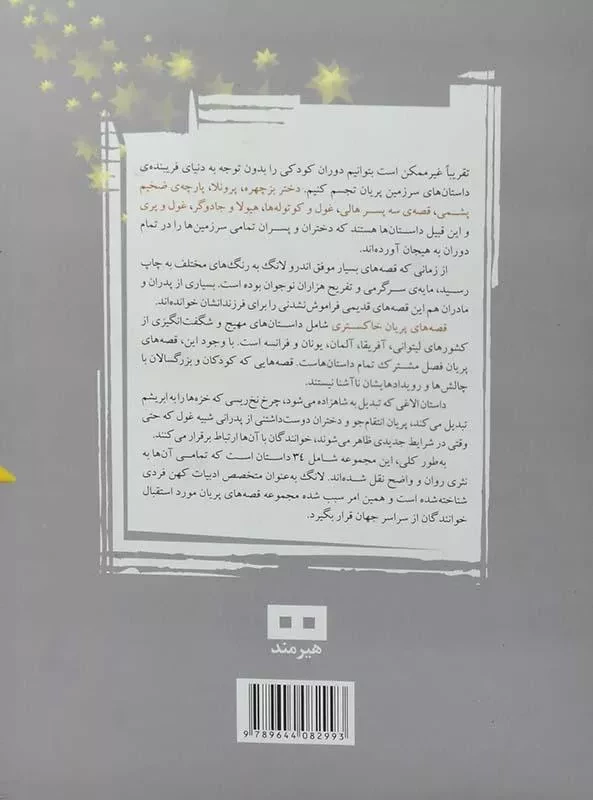 تقریباً غیرممکن است بتوانیم دوران کودکی را بدون توجه به دنیای فریبنده‌ی
داستان‌های سرزمین پریان تجسم کنیم. دختر بزچهره، پرونلا، پارچه‌ی ضخیم
پشمی، قصه‌ی سه پسر هالی، غول و کوتوله‌ها، هیولا و جادوگر، غول و پری
و این قبیل داستان‌ها هستند که دختران و پسران تمامی سرزمین‌ها را در تمام
دوران به هیجان آورده‌اند.
از زمانی که قصه‌های بسیار موفق اندرو لانگ به رنگ‌های مختلف به چاپ
رسید، مایه‌ی سرگرمی و تفریح هزاران نوجوان بوده است. بسیاری از پدران و
مادران هم این قصه‌های قدیمی فراموش‌نشدنی را برای فرزندانشان خوانده‌اند.
قصه‌های پریان خاکستری شامل داستان‌های مهیج و شگفت‌انگیزی از
کشورهای لیتوانی، آفریقا، آلمان، یونان و فرانسه است. با وجود این، قصه‌های
پریان فصل مشترک تمام داستان‌هاست. قصه‌هایی که کودکان و بزرگسالان با
چالش‌ها و رویدادهایشان ناآشنا نیستند.
داستان الاغی که تبدیل به شاهزاده می‌شود، چرخ نخ‌ریسی که خزه‌ها را به ابریشم
تبدیل می‌کند، پریان انتقام‌جو و دختران دوست‌داشتنی از پدرانی شبیه غول که حتی
وقتی در شرایط جدیدی ظاهر می‌شوند، خوانندگان با آن‌ها ارتباط برقرار می‌کنند.
به‌طور کلی، این مجموعه شامل ۳٤ داستان است که تمامی آن‌ها به
نثری روان و واضح نقل شده‌اند. لانگ به‌عنوان متخصص ادبیات کهن فردی
شناخته‌شده است و همین امر سبب شده مجموعه قصه‌های پریان مورد استقبال
خوانندگان از سراسر جهان قرار بگیرد.
هیرمند
9 789644 082993